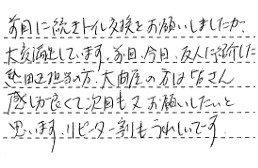 前回に続きトイレ交換をお願いしましたが、
大変満足しています。前回、今日、友人に紹介した
担当の方、大内産の方は皆さん
感じが良くて次回も又お願いしたいと
思います。リピーター割もうれしいです。